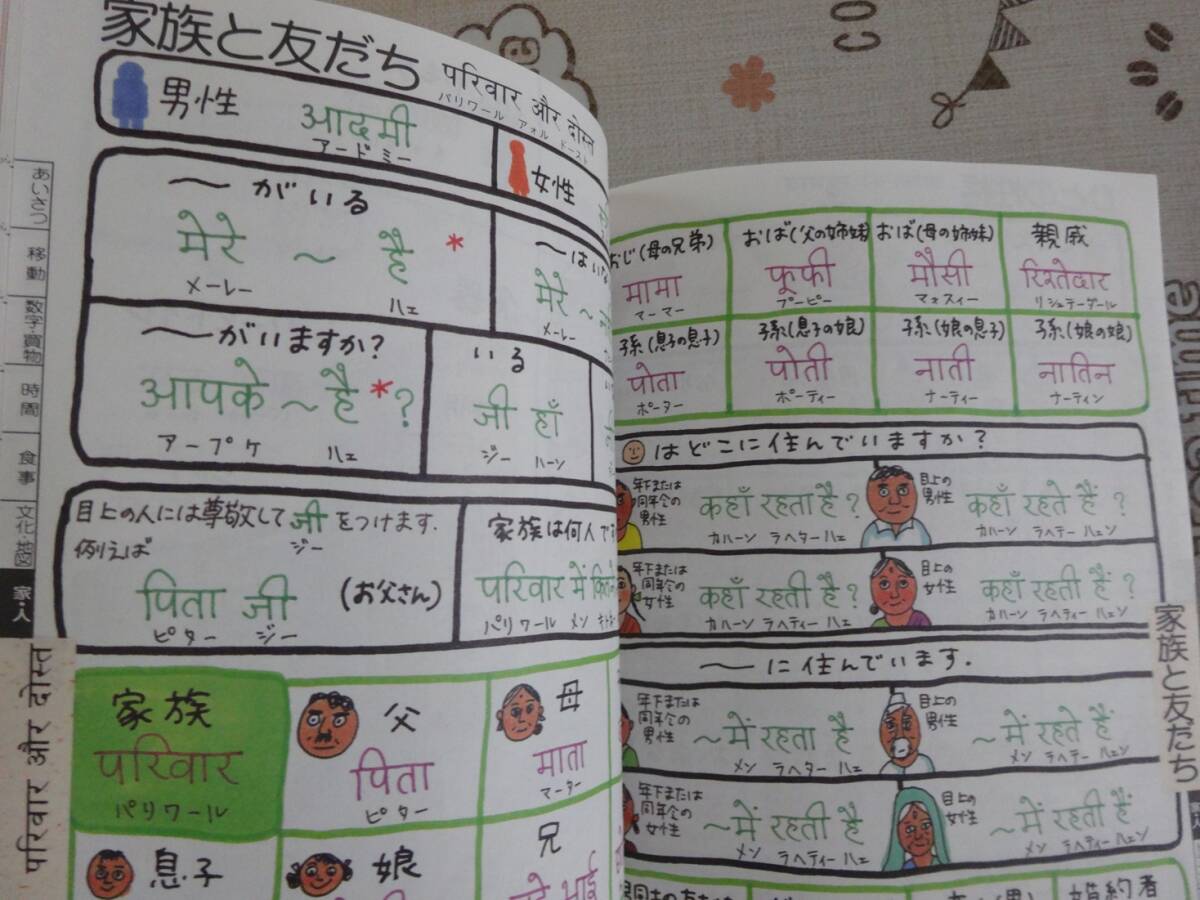 家族と友だち
परिवार और दोस्त
パリワール アォル ドースト
男性
आदमी
アードミー
女性
〜がいる
मेरे ~ है *
メーレー ハェ
मेरे ~
メーレー
〜がいますか?
आपके ~ है * ?
アープケ ハェ
いる
जी हाँ
ジー ハーン
目上の人には尊敬して जी をつけます.
ジー
例えば
पिता जी (お父さん)
ピター ジー
家族は何人で
परिवार में
パリワール メン
家族
परिवार
パリワール
父
पिता
ピター
母
माता
マーター
息子
娘
兄
भाई
あいさつ
移動
数字・買物
時間
食事
文化・地図
家・人
परिवार और दोस्त
おじ(母の兄弟)
मामा
マーマー
おば(父の姉妹)
फूफी
プーピー
おば(母の姉妹)
मौसी
マォスィー
親戚
रिश्तेदार
リシュテーダール
孫(息子の息子)
पोता
ポーター
孫(息子の娘)
पोती
ポーティー
孫(娘の息子)
नाती
ナーティー
孫(娘の娘)
नातिन
ナーティン
はどこに住んでいますか?
年下または
同年令の
男性
कहाँ रहता है ?
カハーン ラヘター ハェ
目上の
男性
कहाँ रहते हैं ?
カハーン ラヘテー ハェン
年下または
同年令の
女性
कहाँ रहती है ?
カハーン ラヘティー ハェ
目上の
女性
कहाँ रहती हैं ?
カハーン ラヘティー ハェン
〜に住んでいます.
年下または
同年令の
男性
~में रहता है
メン ラヘター ハェ
目上の
男性
~में रहते हैं
メン ラヘテー ハェン
年下または
同年令の
女性
~में रहती है
メン ラヘティー ハェ
目上の
女性
~में रहती हैं
メン ラヘティー ハェン
婚約者
家族と友だち
CO